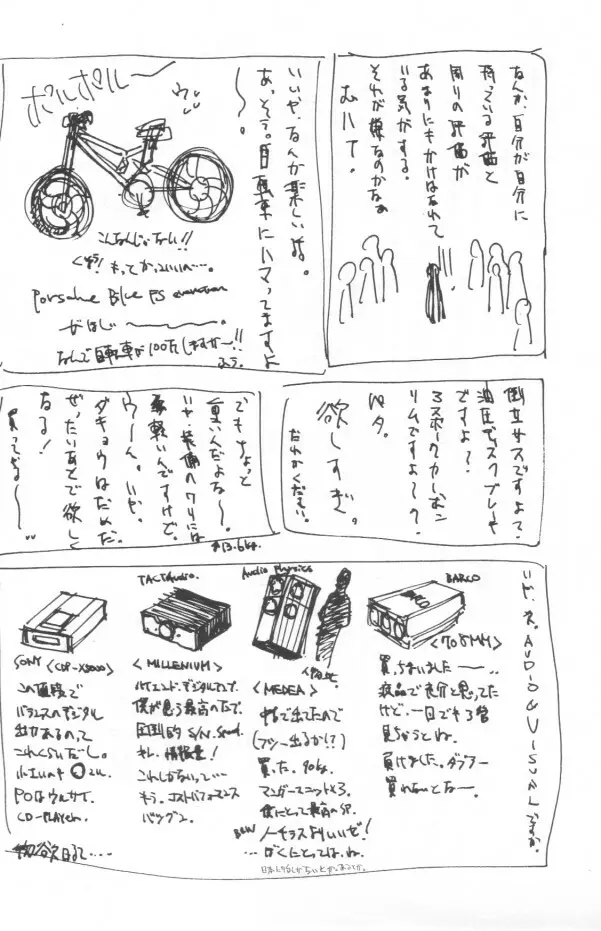 なんか、自分が自分に
持っている評価と
周りの評価が
あまりにもかけはなれて
いる気がする。
それが嫌なのかなぁ
むハて。
いいや、なんか楽しいよ。
あ、そう。自転車にハマってますよ
〜。
ポルポル〜
こんなんじゃない!!
くそう!もっとかっこいいの〜。
Porsche Bike FS evolution
がほしい〜。
なんで自転車が100万しますか〜!!
ふう。
倒立サスですよ?
油圧ディスクブレーキ
ですよ?
3スポークカーボン
リムですよ〜?
ベタ。
欲しすぎ。
だれかください。
でもちょっと
重いんだよな〜。
いや、装備のワリには
軽いんですけど。
ウーン。いや。
ダキョウはだめだ。
ぜったいあとで欲しく
なる!
買ってやる〜
※13.6kg.
いや、ネ。AUDIO&VISUALですが。
BARCO
<708MM>
買っちまいました〜
液晶で充分と思ってた
けど、一回でも3管
見ちゃうとね。
負けました。ダブラー
買わないとなー。
Audio Physics
<MEDEA>
中古で出てたので
(フツー出るか!?)
買った。90kg.
マンガーユニット×3。
僕にとって最高のSP.
B&W ノーチラスよりいいぜ!
…ぼくにとってはね。
TACT Audio.
<MILLENIUM>
ハイエンド・デジタルアンプ。
僕が思う最高の石で。
圧倒的 S/N. Speed.
キレ、情報量!
これしかないって…
もう。コストパフォーマンス
バツグン。
SONY <CDP-X5000>
この値段で
バランスのデジタル
出力あるのって
これくらいだし。
POはウルサイ。
CD-PLAYER.
物欲日記で....